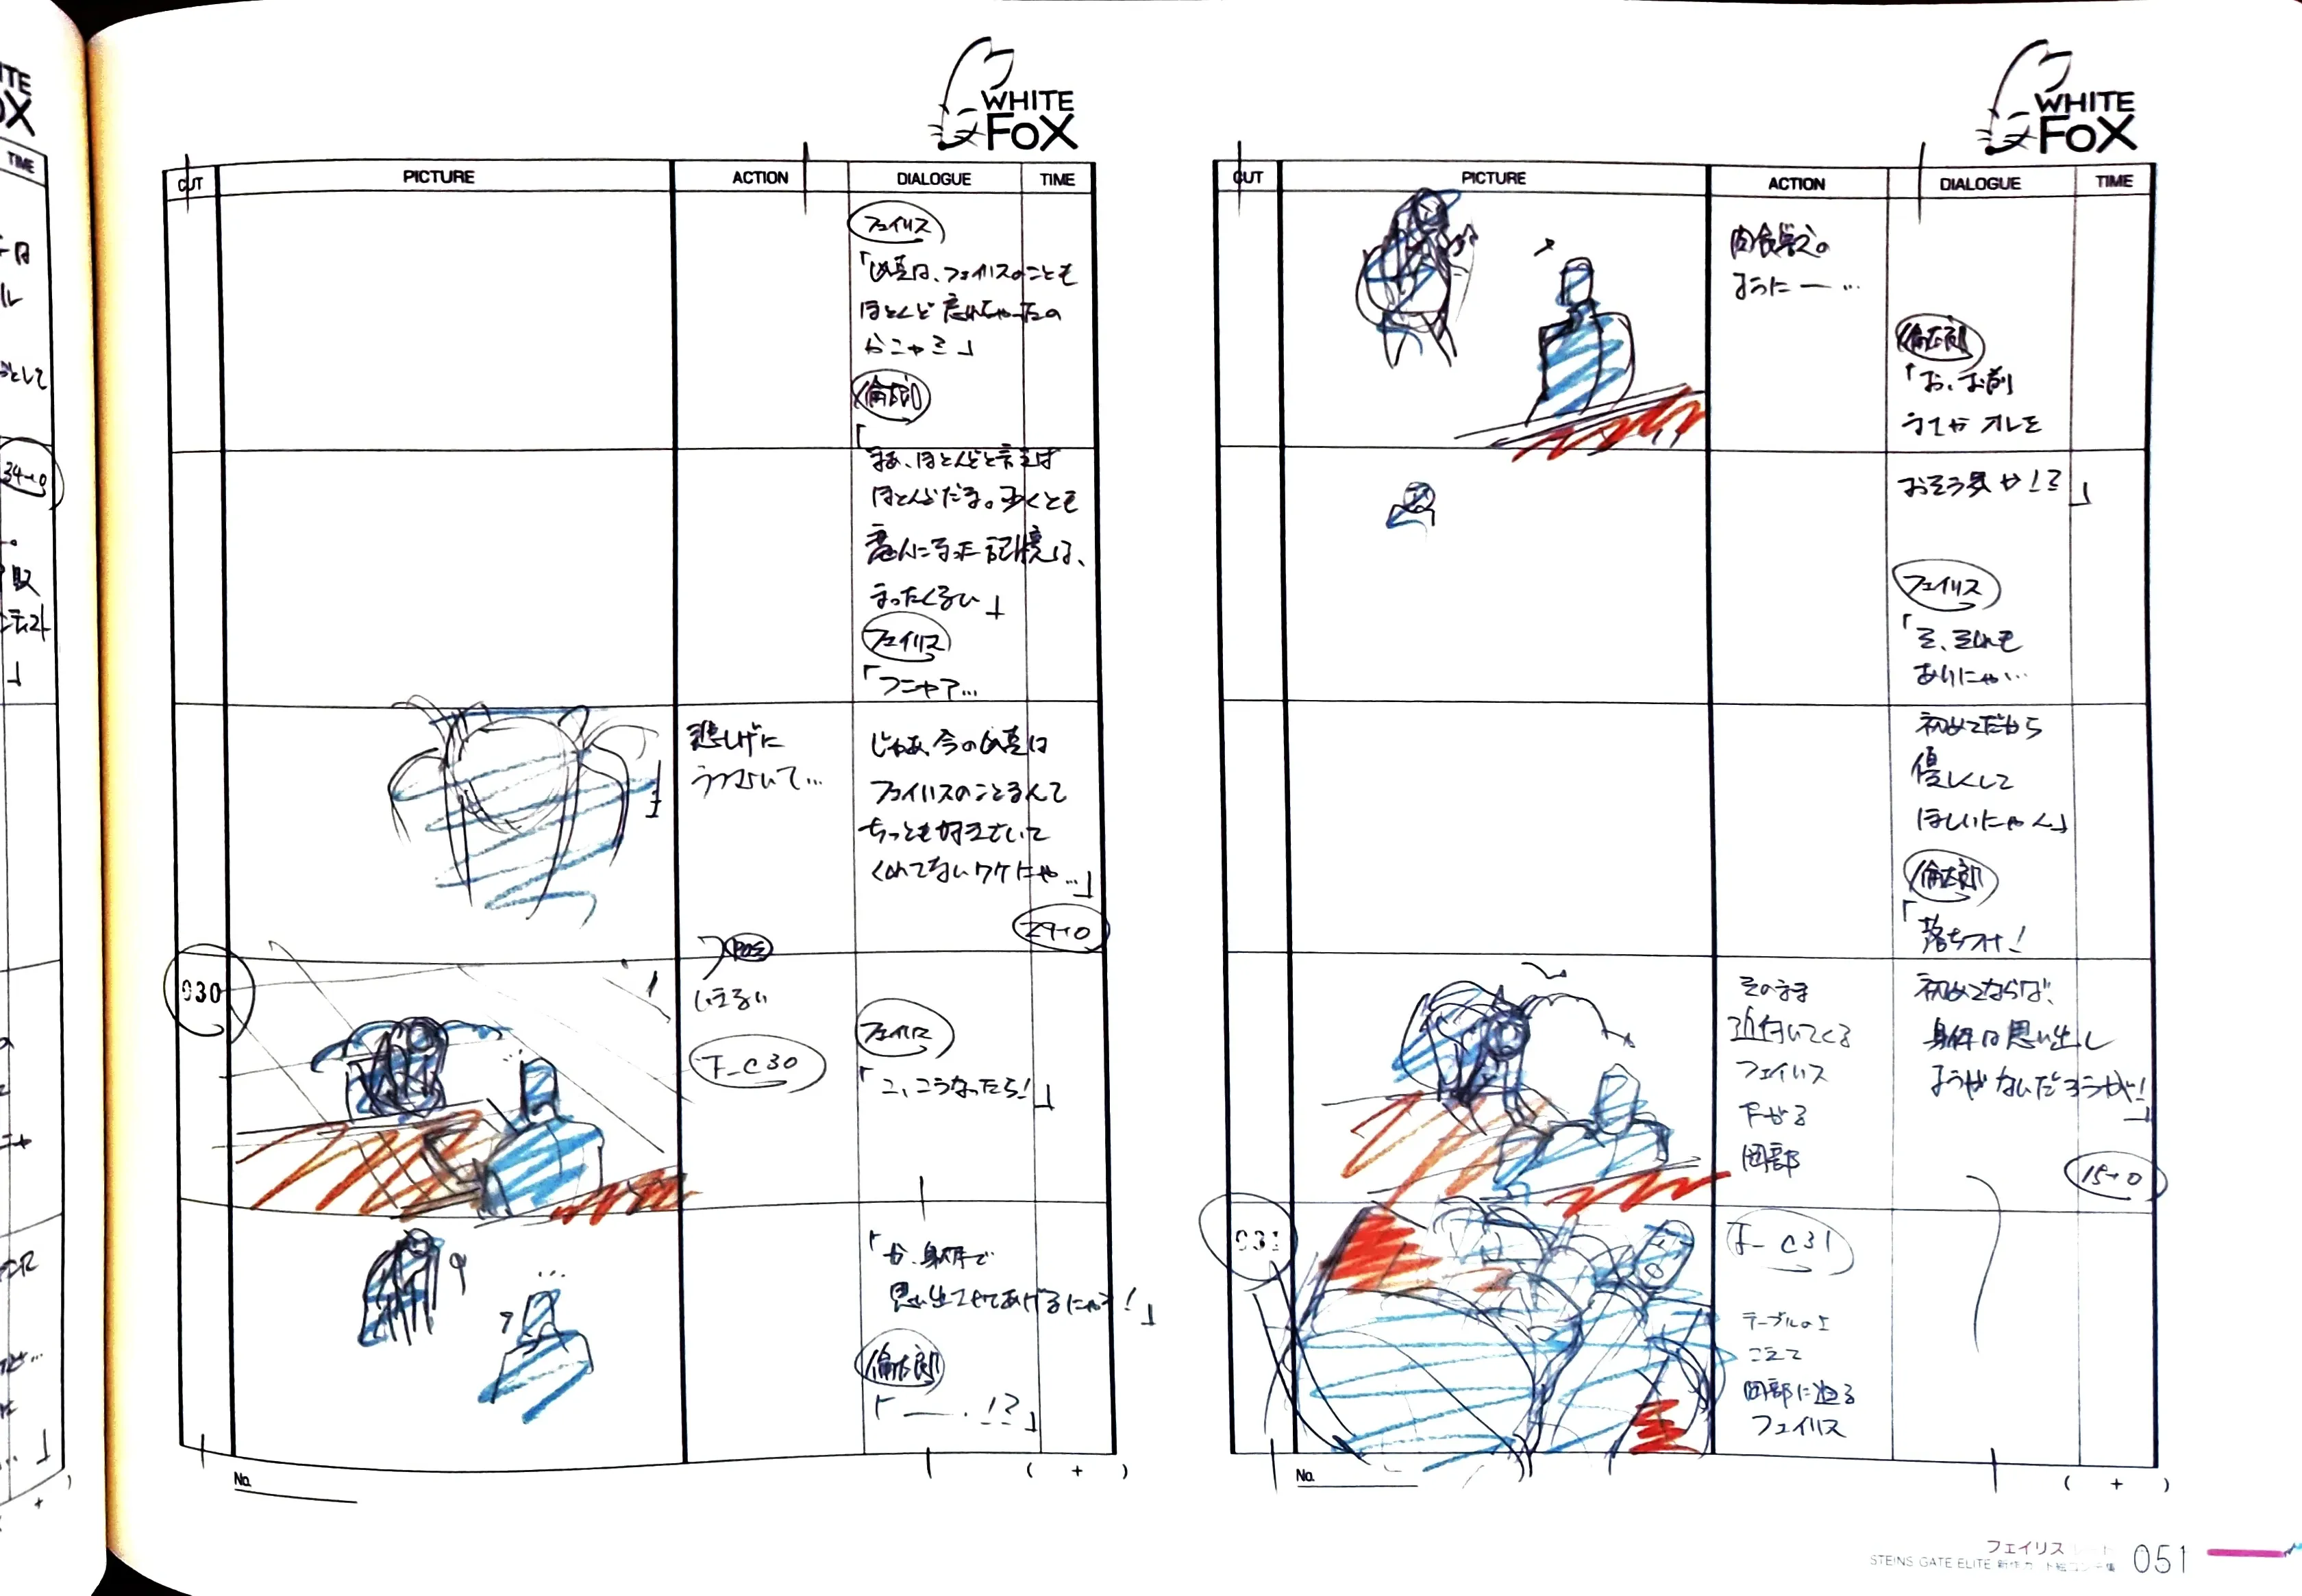 WHITE
FOX
CUT
PICTURE
ACTION
DIALOGUE
TIME
フェイリス
「凶真は、フェイリスのことも
ほとんど忘れちゃったの
かニャ?」
倫太郎
「
まあ、ほとんどと言えば
ほとんどだな。少くとも
恋人になった記憶は、
まったくない」
フェイリス
「フニャア…
悲しげに
うつむいて…
じゃあ、今の凶真は
フェイリスのことなんて
ちっとも好きでいて
くれてないワケにゃ…」
29+0
POS
030
F_C30
フェイリス
「こ、こうなったら!」
「か、身体で
思い出させてあげるにゃ!」
倫太郎
「――.!?」
No.
( + )
WHITE
FOX
CUT
PICTURE
ACTION
DIALOGUE
TIME
肉食獣の
ように―…
倫太郎
「お、お前
まさかオレを
おそう気か!?」
フェイリス
「そ、それも
ありにゃ…
初めてだから
優しくして
ほしいにゃん」
倫太郎
「落ちつけ!
そのまま
近付いてくる
フェイリス
下がる
岡部
初めてならば、
身体は思い出し
ようがないだろうが!」
15+0
031
F_C31
テーブルの上
こえて
岡部に迫る
フェイリス
No.
( + )
フェイリス
STEINS GATE ELITE
051
WHITE
FOX
TIME
34+0